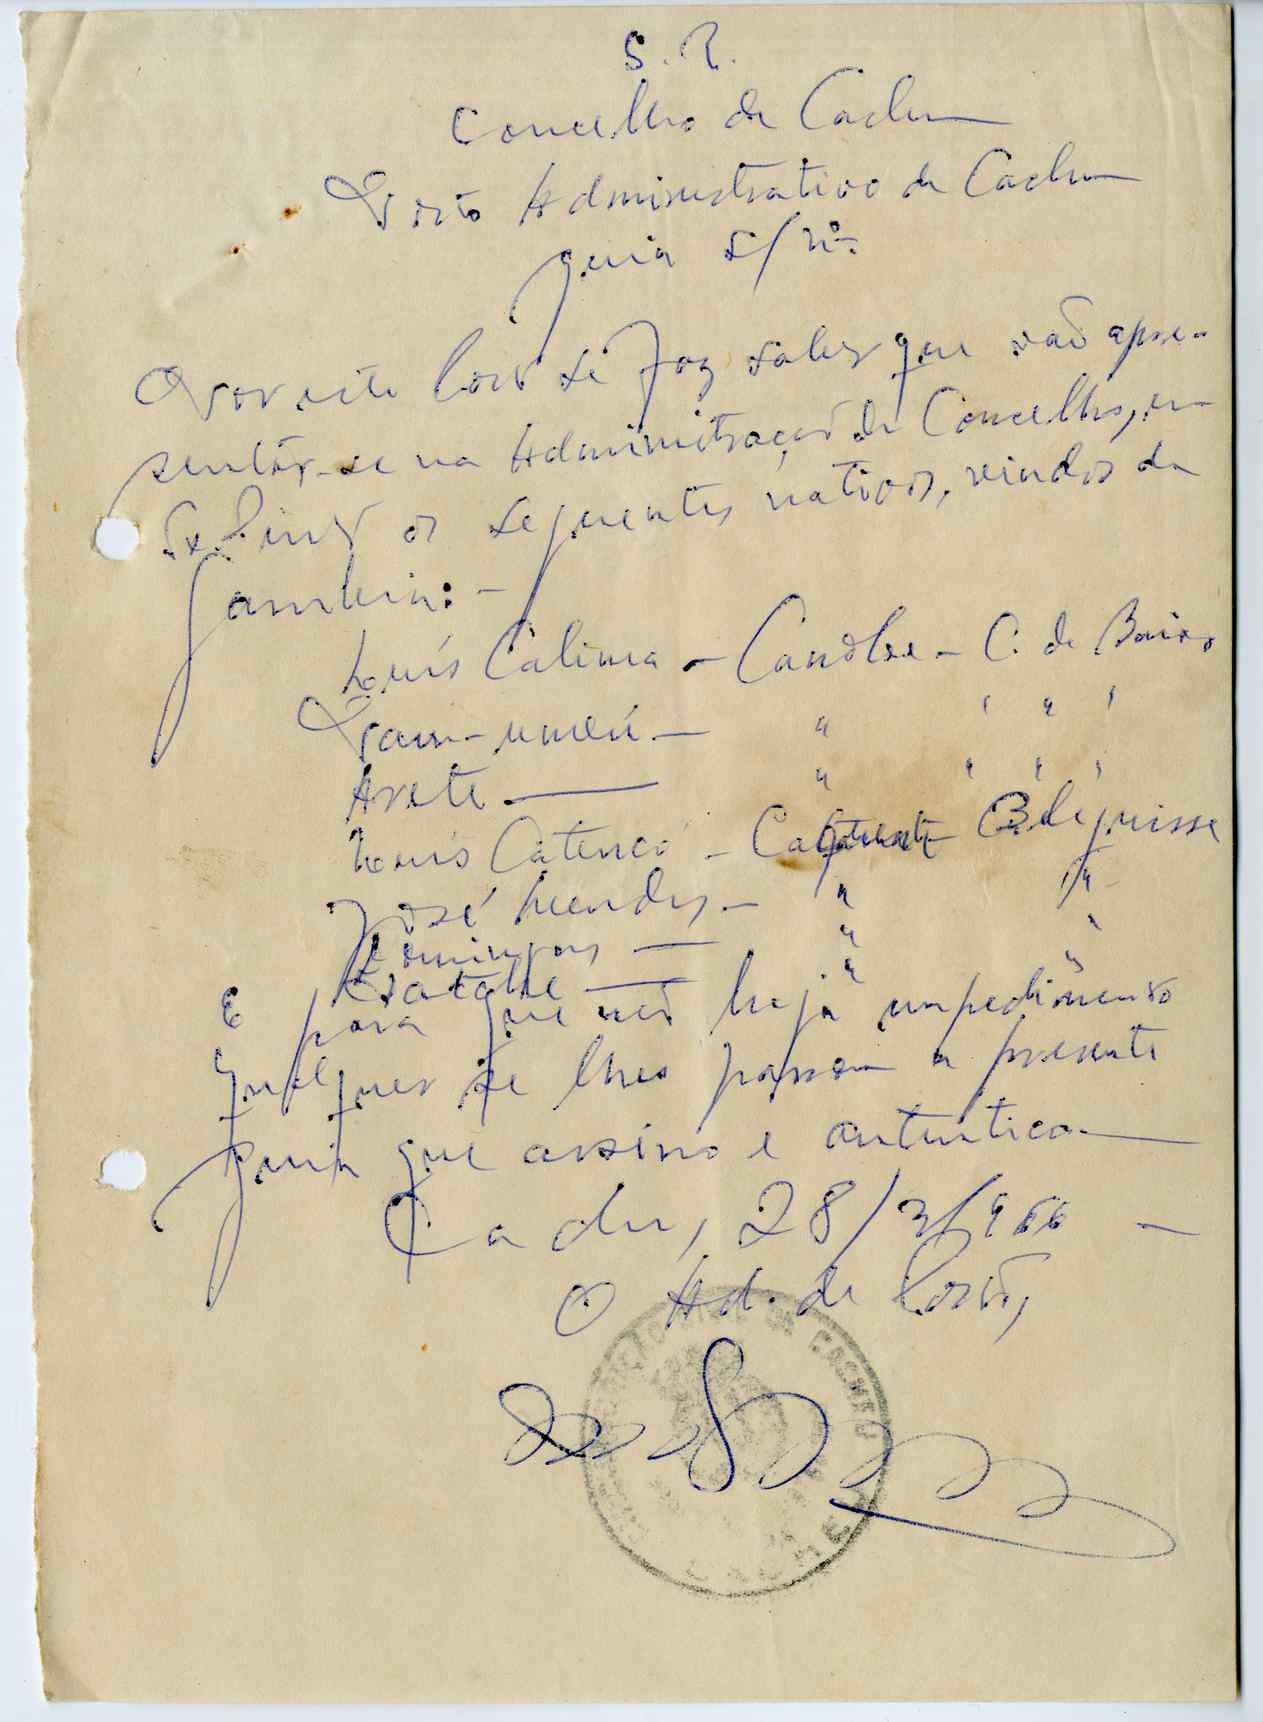 S. R.
Concelho de Cacheu
Posto Administrativo de Cacheu
Guia s/nº
Por este Posto se faz saber que vão apre-
sentar-se na Administração do Concelho, em
os seguentes nativos, vindos da
Gambia: -
Luís Calima - Candbe - C. de Baixo
- " " " "
Arete - " " " "
Luís Catenco - Baleguisse
José Mendes - " "
Domingos - " "
- " "
E para que não haja impedimento
qualquer se lhes passou a presente
guia que assino e autentico
Cacheu, 28/3/966 -
O Ad. de Posto,
CACHEU